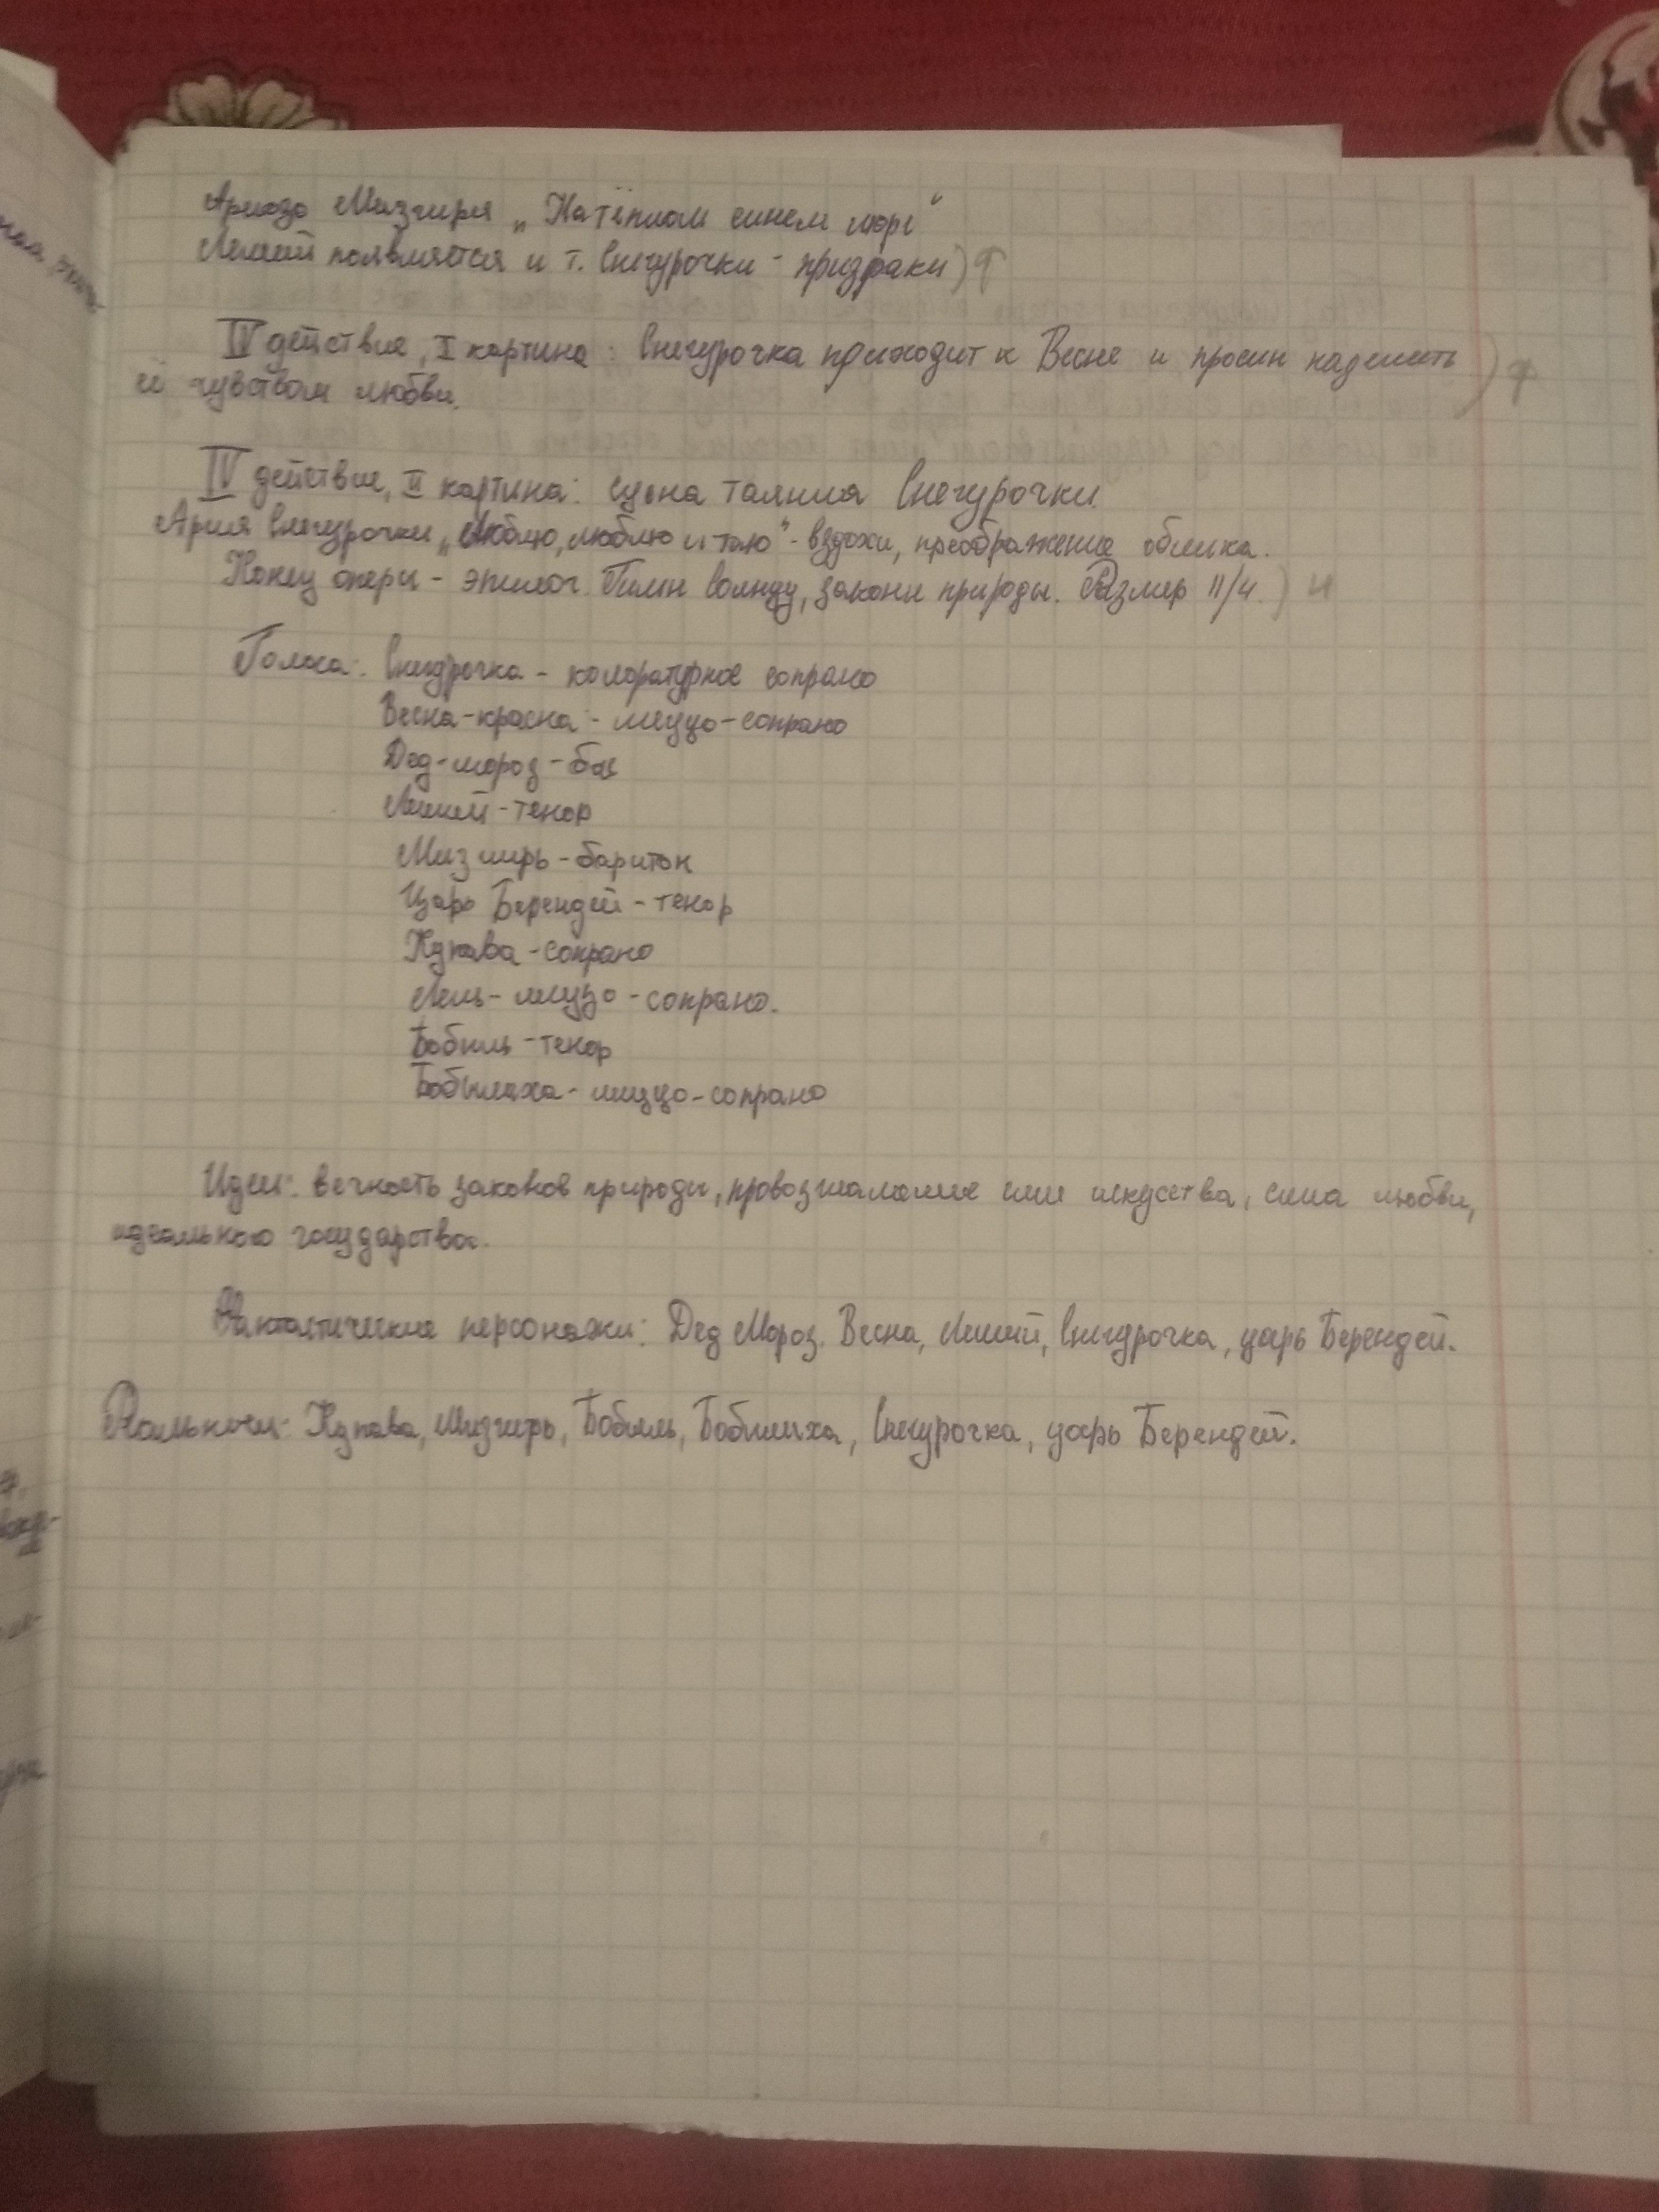 Ариозо Мизгиря „На тёплом синем море"
Леший появляется и т. Снегурочки - призраки) ф
IV действие, I картина: Снегурочка приходит к Весне и просит наделить ) ф
её чувством любви.
IV действие, II картина: сцена таяния Снегурочки.
Ария Снегурочки „Люблю, люблю и таю" - вздохи, преображение облика.
Конец оперы - эпилог. Гимн солнцу, законы природы. Размер 11/4.) н
Голоса: Снегурочка - колоратурное сопрано
Весна-красна - меццо-сопрано
Дед-мороз - бас
Леший - тенор
Мизгирь - баритон
Царь Берендей - тенор
Купава - сопрано
Лель - меццо-сопрано.
Бобыль - тенор
Бобылиха - меццо-сопрано
Идеи: вечность законов природы, провозглашение силы искусства, сила любви,
идеального государства.
Фантастические персонажи: Дед Мороз, Весна, Леший, Снегурочка, царь Берендей.
Купава, Мизгирь, Бобыль, Бобылиха, Снегурочка, царь Берендей.